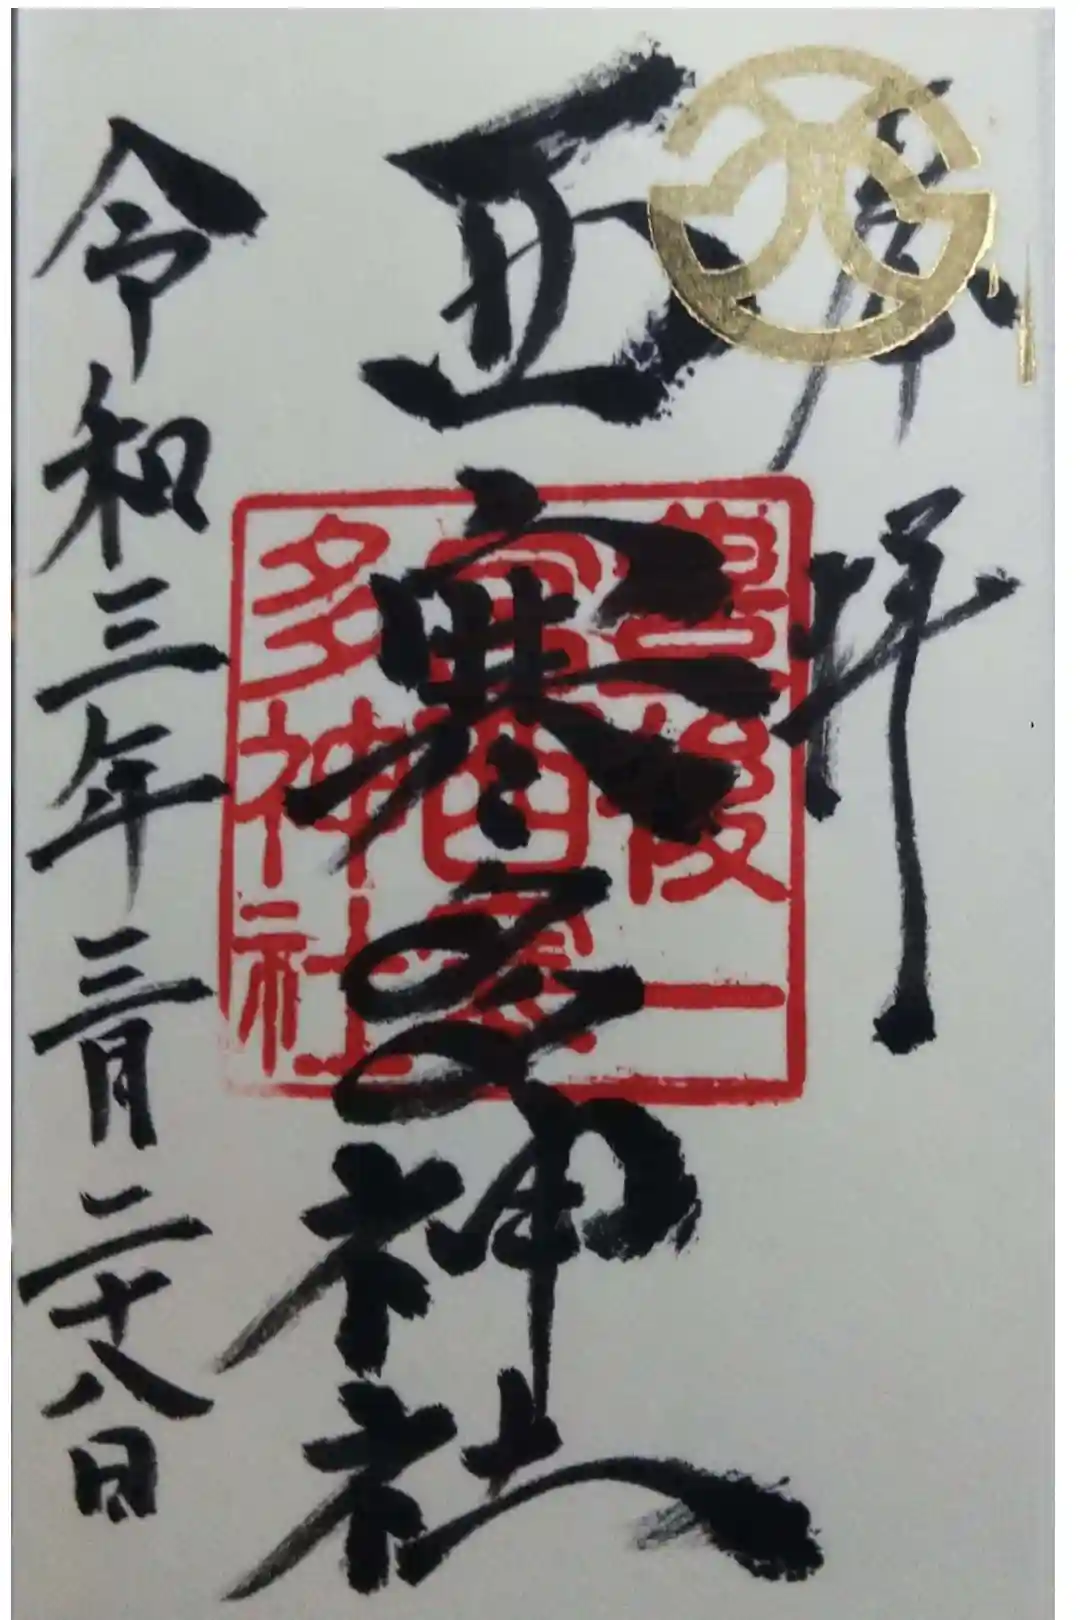 奉拝
西寒多神社
豊後一
宮西寒
多神社
令和三年三月二十八日